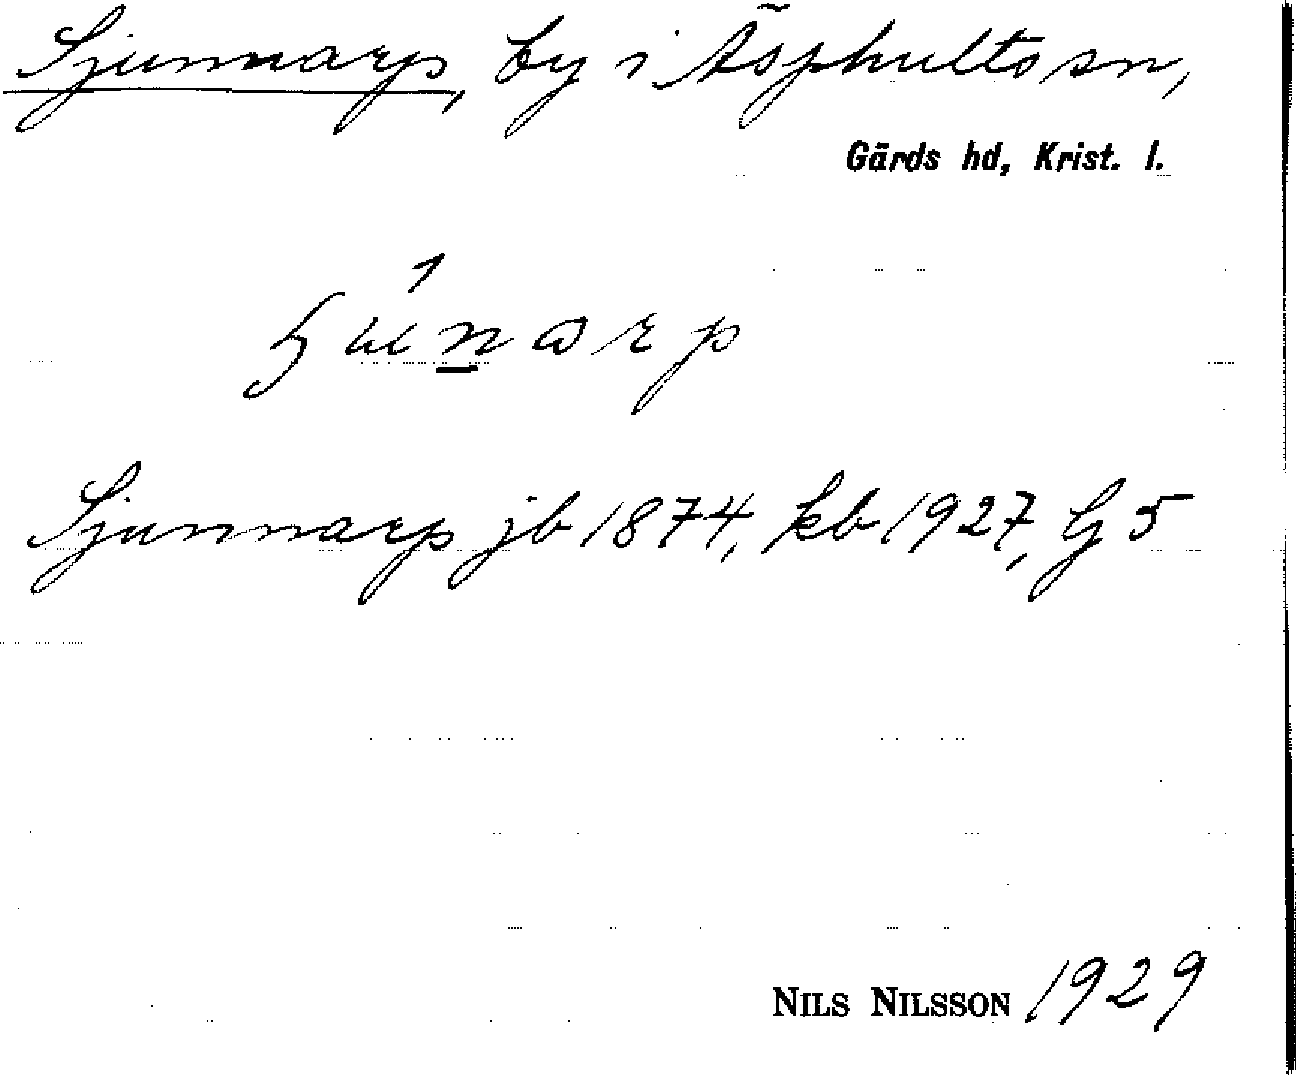 Sjunnarp, by i Äsphults sn,
Gärds hd, Krist. l.
Sjunnarp jb 1874, kb 1927, G 5
NILS NILSSON 1929